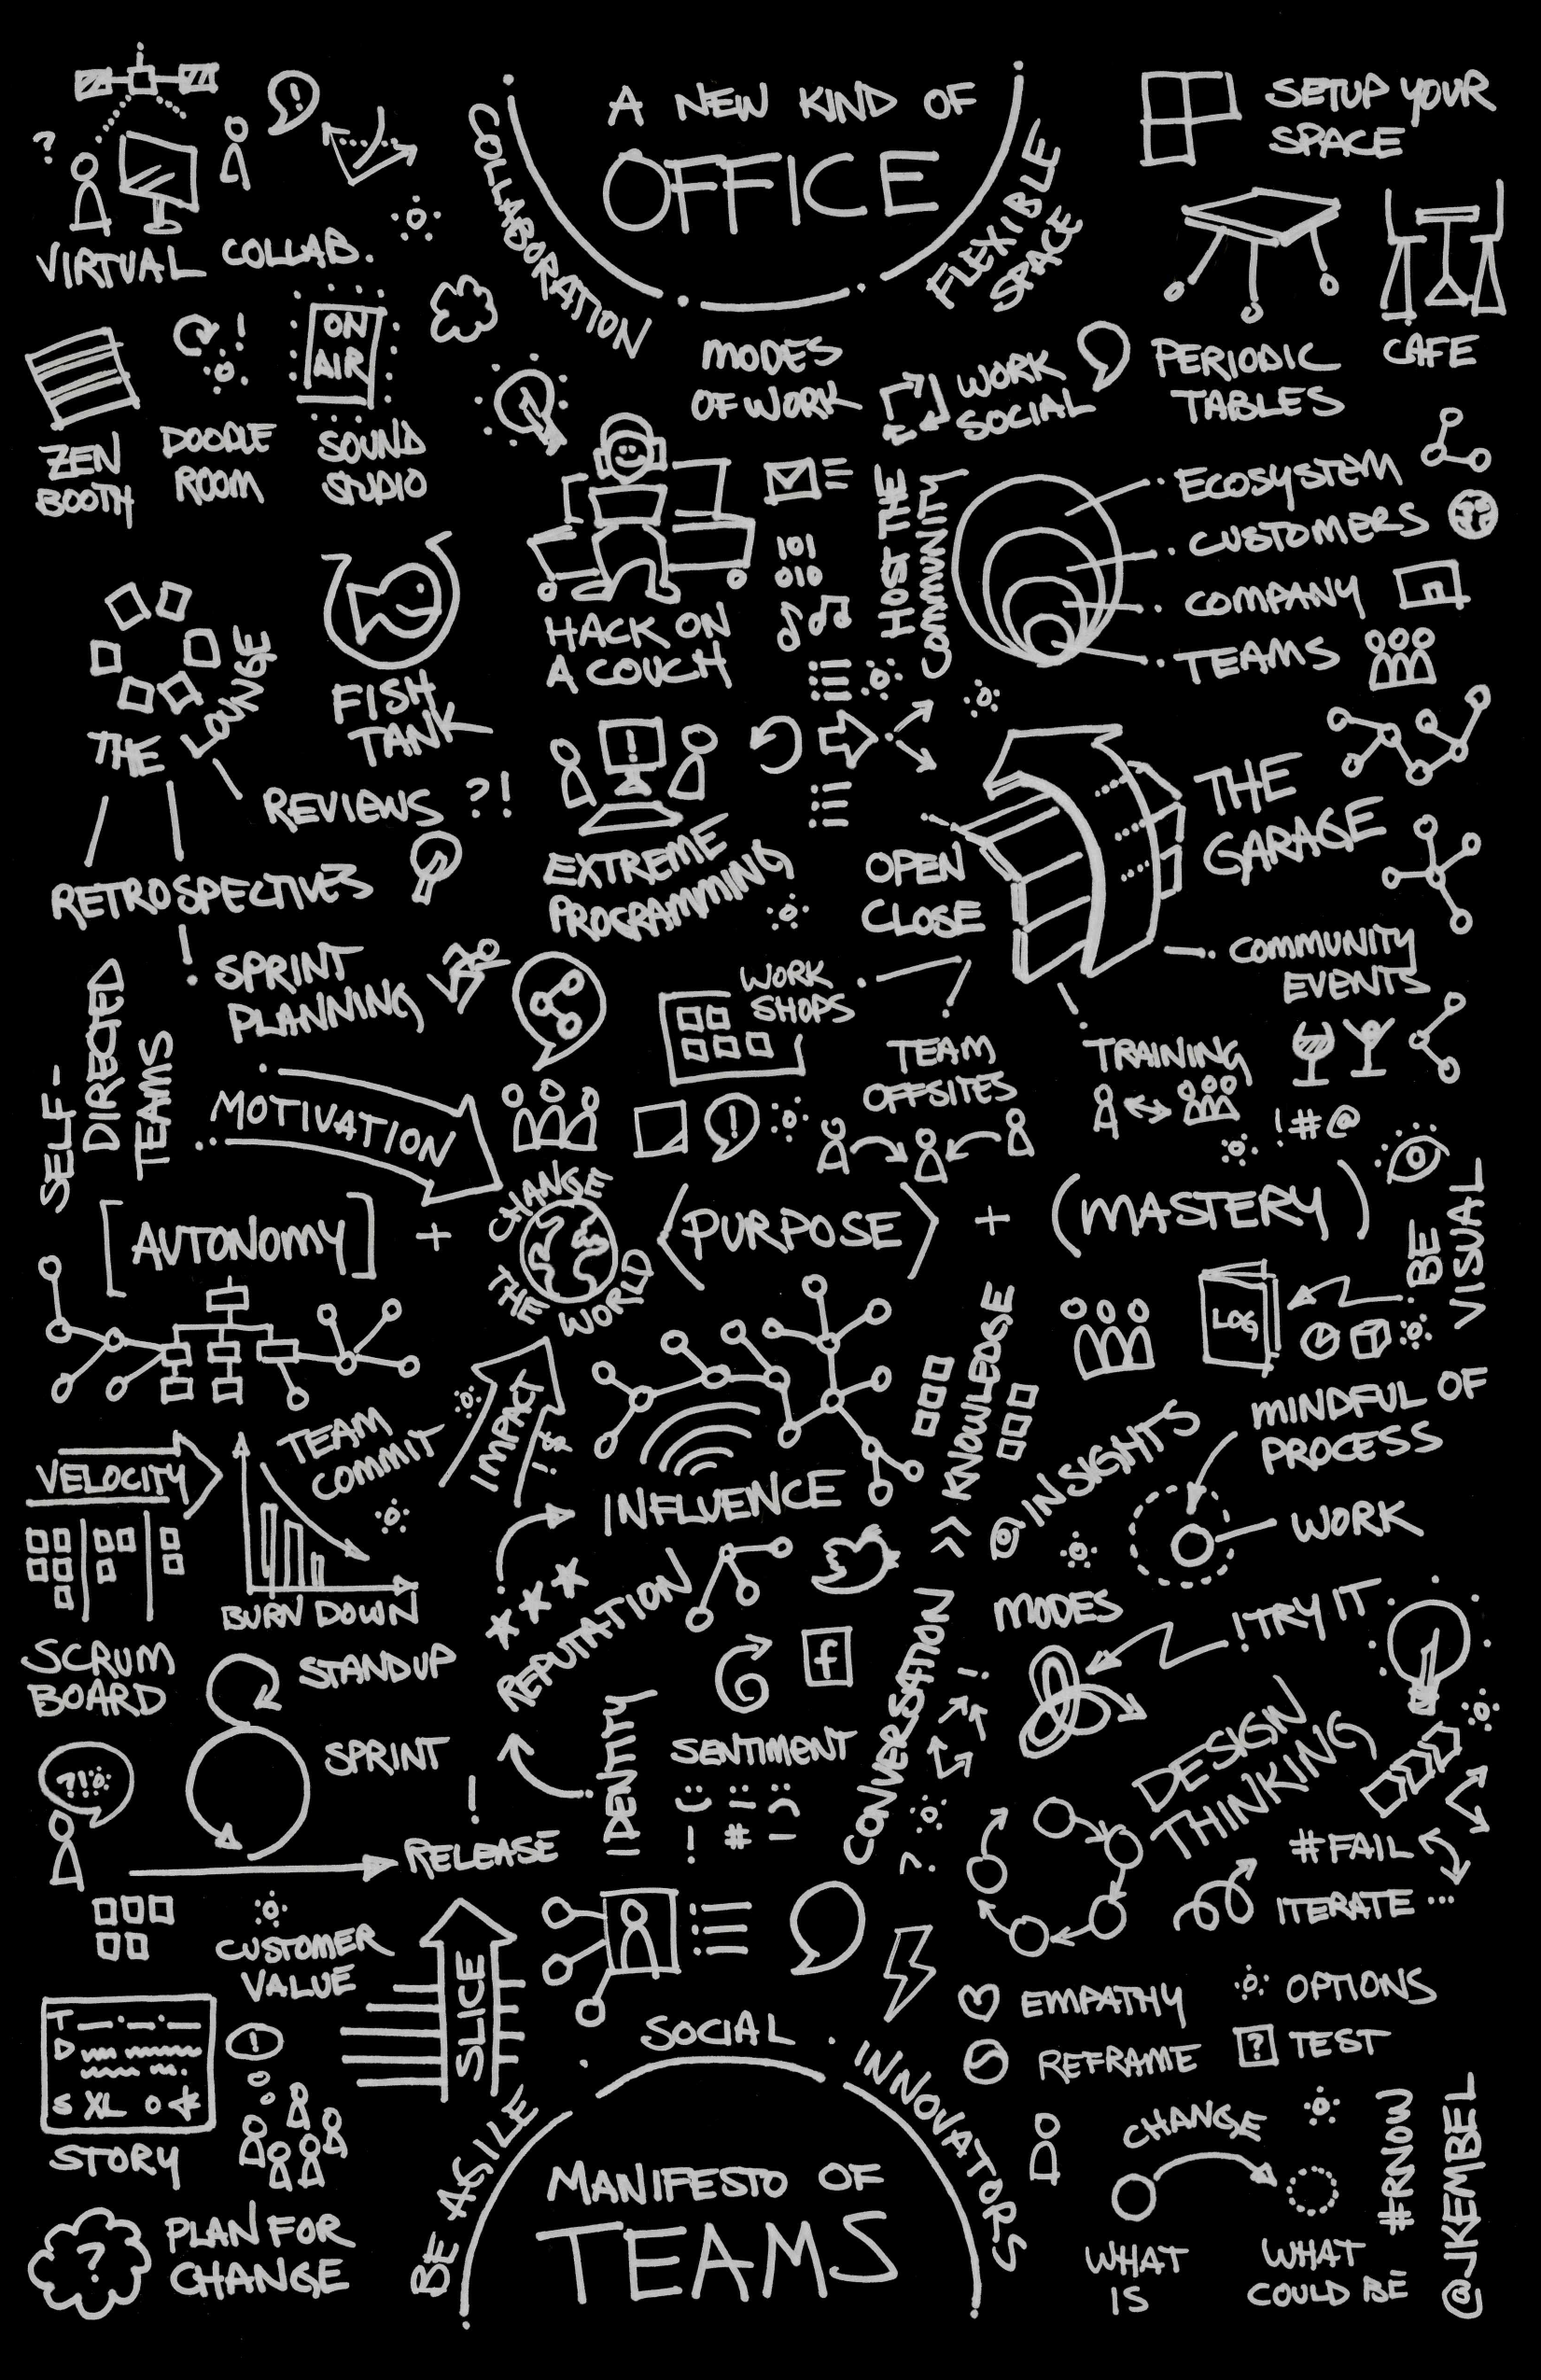 A NEW KIND OF
OFFICE
COLLABORATION
FLEXIBLE
SPACE
SETUP YOUR
SPACE
?
!
VIRTUAL COLLAB.
ZEN
BOOTH
!
DOODLE
ROOM
ON
AIR
SOUND
STUDIO
MODES
OF WORK
WORK
SOCIAL
PERIODIC
TABLES
CAFE
HACK ON
A COUCH
101
010
HOST THE
COMMUNITY
ECOSYSTEM
CUSTOMERS
COMPANY
TEAMS
THE
LOUNGE
FISH
TANK
REVIEWS ?!
RETROSPECTIVES
SPRINT
PLANNING
!
EXTREME
PROGRAMMING
OPEN
CLOSE
THE
GARAGE
COMMUNITY
EVENTS
WORK
SHOPS
TEAM
OFFSITES
TRAINING
!#@
SELF-
DIRECTED
TEAMS
MOTIVATION
!
[AUTONOMY] +
CHANGE
THE WORLD
<PURPOSE> + (MASTERY)
BE
VISUAL
LOG
VELOCITY
TEAM
COMMIT
IMPACT
! $
INFLUENCE
KNOWLEDGE
INSIGHTS
MINDFUL OF
PROCESS
WORK
BURN DOWN
SCRUM
BOARD
STANDUP
SPRINT
RELEASE
?!
REPUTATION
f
IDENTITY
SENTIMENT
! # -
CONVERSATION
!
?
MODES
! TRY IT
DESIGN
THINKING
#FAIL
ITERATE ...
CUSTOMER
VALUE
SLICE
T
D
S XL
STORY
!
PLAN FOR
CHANGE
?
EMPATHY
OPTIONS
REFRAME
? TEST
BE AGILE
SOCIAL
INNOVATORS
MANIFESTO OF
TEAMS
CHANGE
WHAT
IS
WHAT
COULD BE
#RNOW
@JKEMBEL